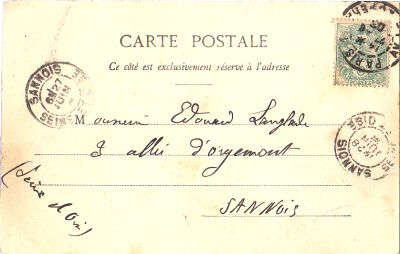 CARTE POSTALE
Ce côté est exclusivement réservé à l'adresse
PARIS
SANNOIS
27
JUIN
SEINE
Monsieur Edouard Langlade
3 allée d'orgemont
SANNOIS
(Seine et Oise)
SANNOIS
OISE